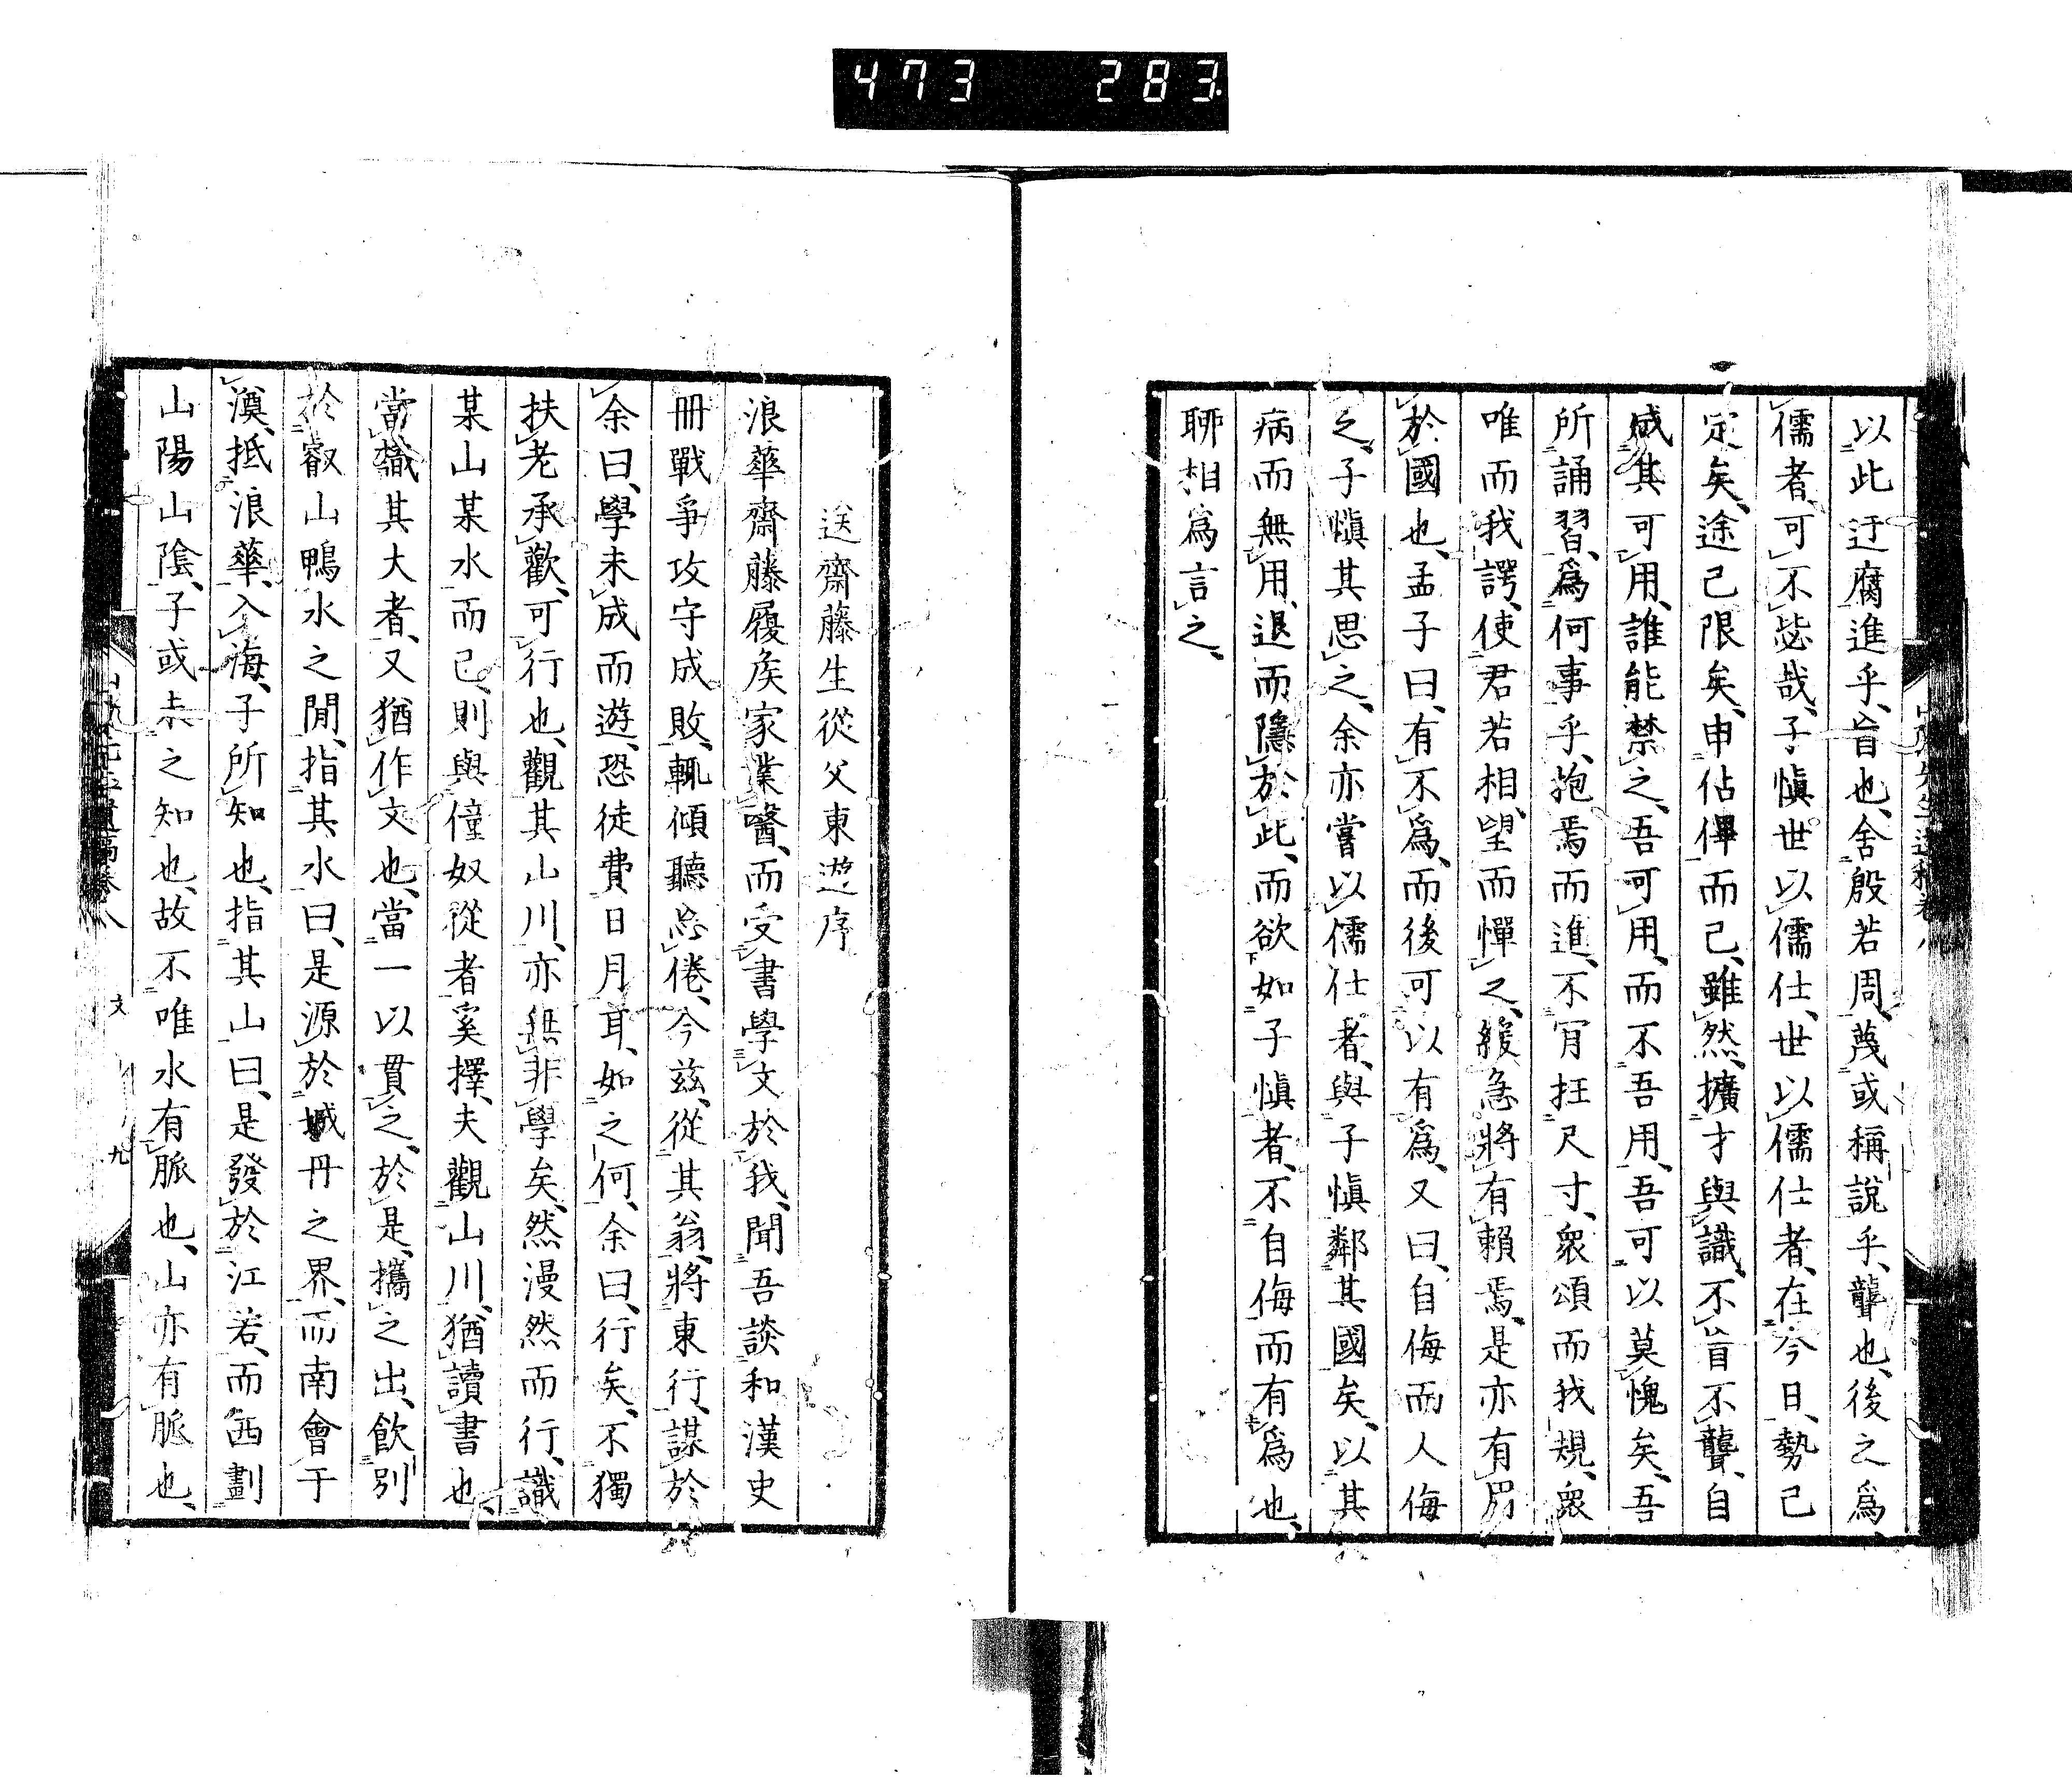 473 283
以此迂腐進乎、盲也、舍殷若周、蔑或稱說乎、聾也、後之爲、
儒者、可不毖哉、子愼世以儒仕、世以儒仕者、在今日、勢已
定矣、途已限矣、申佔僤而已、雖然、擴才與識、不盲不聾、自
成其可用、誰能禁之、吾可用、而不吾用、吾可以莫愧矣、吾
所誦習、爲何事乎、抱焉而進、不肎抂尺寸、衆頌而我規、衆
唯而我諤、使君若相、望而憚之、緩急將有賴焉、是亦有用
於國也、孟子曰、有不爲、而後可以有爲、又曰、自侮而人侮
之、子愼其思之、余亦嘗以儒仕者、與子愼鄰其國矣、以其
病而無用、退而隱於此、而欲如子愼者、不自侮而有爲也、
聊相爲言之、
送齋藤生從父東遊序
浪華齋藤履矦家業醫、而受書學文於我、聞吾談和漢史
冊戰爭攻守成敗、輒傾聽忘倦、今茲、從其翁、將東行、謀於
余曰、學未成、而遊、恐徒費日月耳、如之何、余曰、行矣、不獨
扶老承歡、可行也、觀其山川、亦無非學矣、然漫然而行、識
某山某水而已、則與僮奴從者奚擇、夫觀山川、猶讀書也、
當識其大者、又猶作文也、當一以貫之、於是、攜之出、飮別
於叡山鴨水之間、指其水曰、是源於城丹之界、而南會于
澱、抵浪華、入海、子所知也、指其山曰、是發於江若、而西劃
山陽山陰、子或未之知也、故不唯水有脈也、山亦有脈也、
卷八
文
九